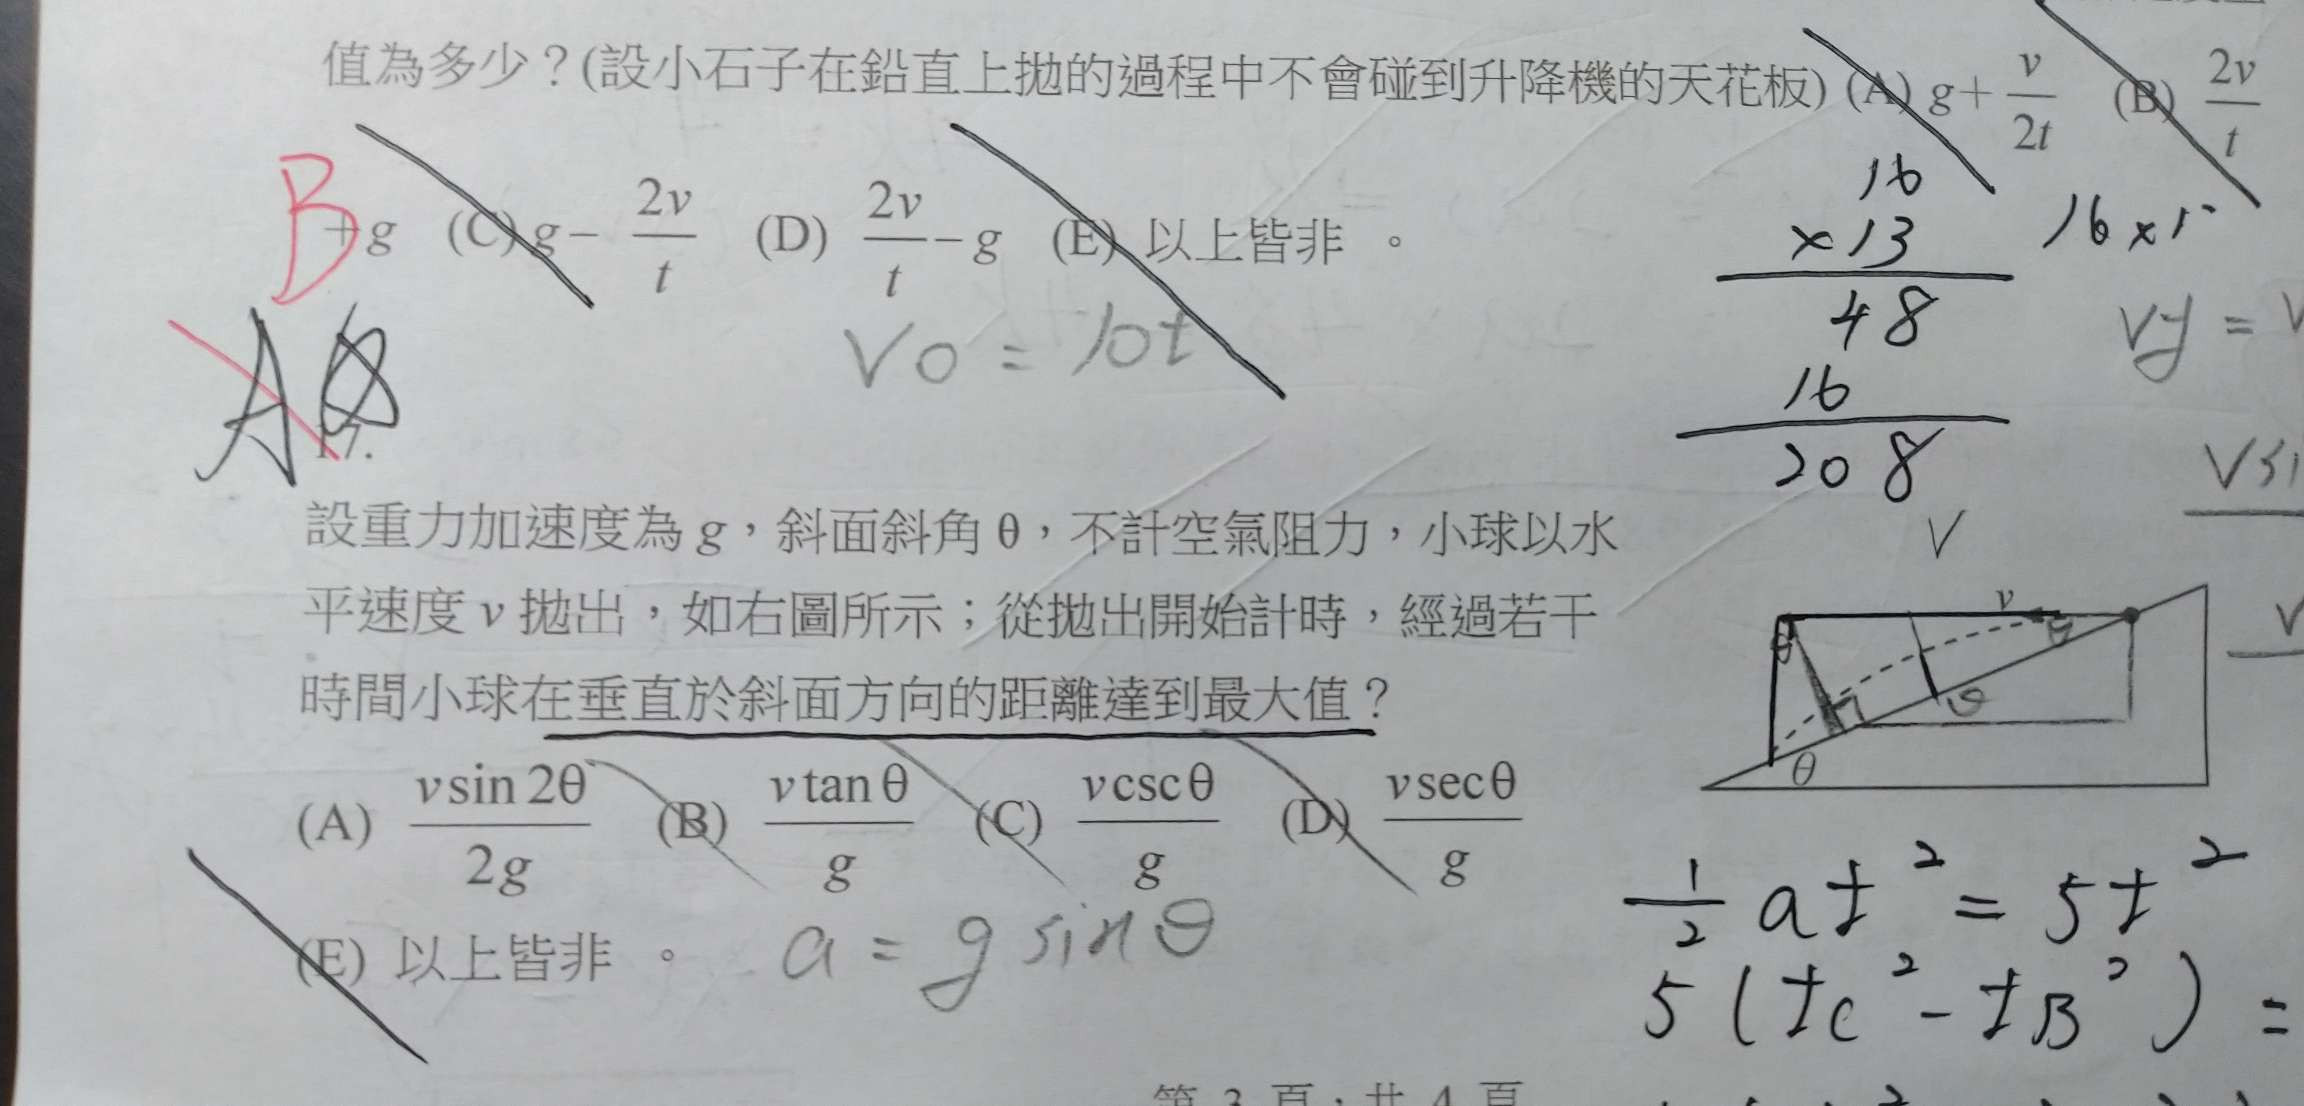 值為多少？(設小石子在鉛直上拋的過程中不會碰到升降機的天花板) (A) g+ v/2t (B) 2v/t
B
+g (C) g− 2v/t (D) 2v/t −g (E) 以上皆非 。
16
×13
48
16
208
16×1
Vy = V
V0 = 10t
A
17.
Vsi
設重力加速度為 g，斜面斜角 θ，不計空氣阻力，小球以水
平速度 v 拋出，如右圖所示；從拋出開始計時，經過若干
時間小球在垂直於斜面方向的距離達到最大值？
V
v
θ
θ
θ
θ
V
(A) v sin 2θ/2g (B) v tan θ/g (C) v csc θ/g (D) v sec θ/g
(E) 以上皆非 。
a = g sin θ
1/2 at² = 5t²
5(tc² - tB²) =
第 3 頁，共 4 頁